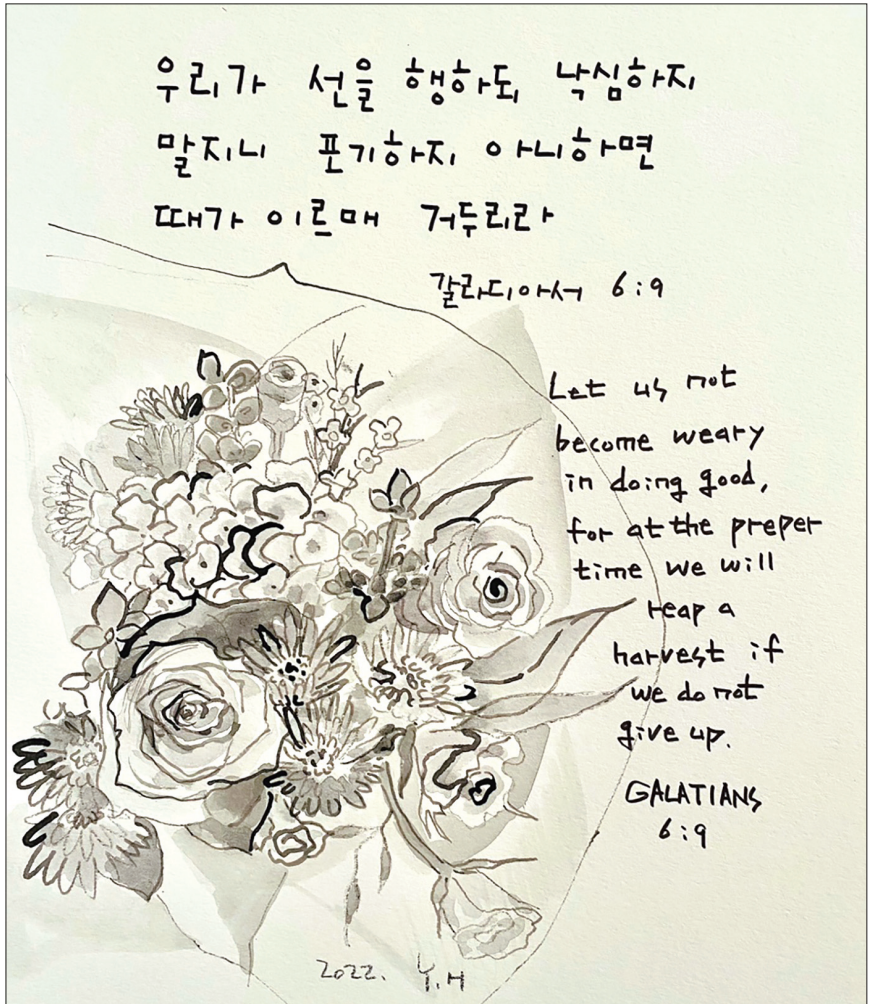 우리가 선을 행하되 낙심하지
말지니 포기하지 아니하면
때가 이르매 거두리라
갈라디아서 6:9
Let us not
become weary
in doing good,
for at the preper
time we will
reap a
harvest if
we do not
give up.
GALATIANS
6:9
2022. Y.H